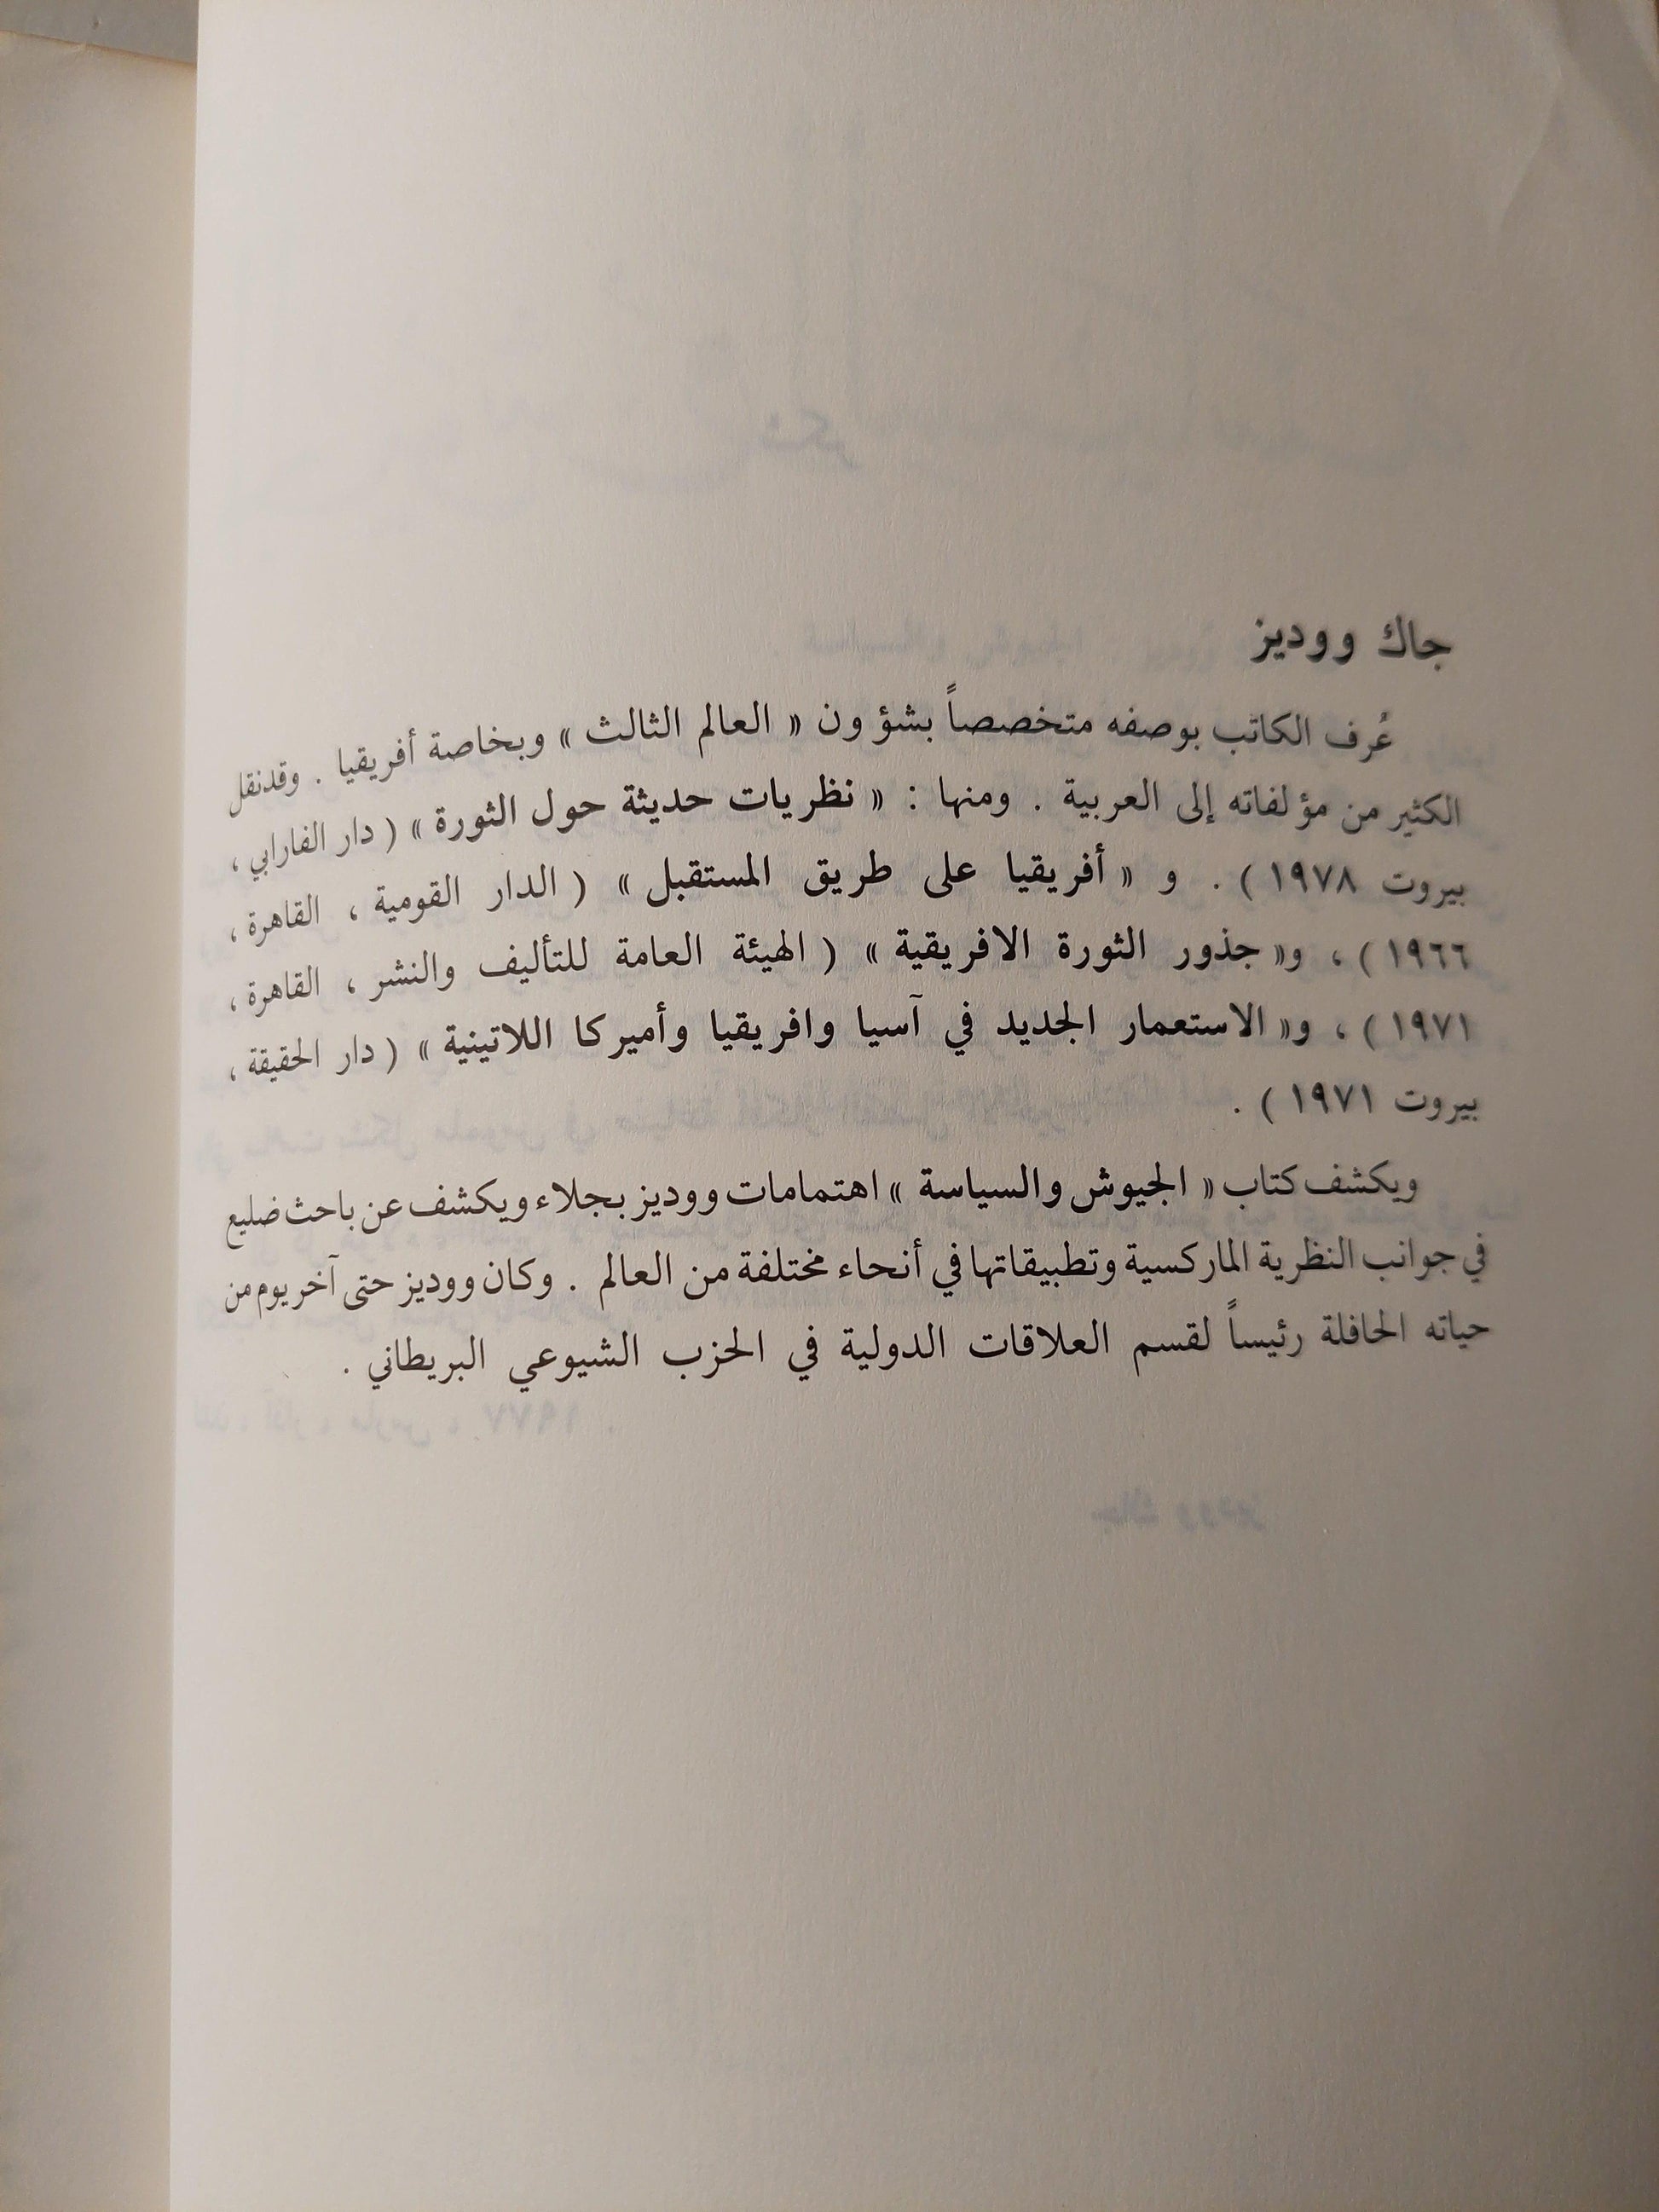 جاك ووديز
عُرف الكاتب بوصفه متخصصاً بشؤون « العالم الثالث » وبخاصة أفريقيا . وقد نقل
الكثير من مؤلفاته إلى العربية . ومنها : « نظريات حديثة حول الثورة » ( دار الفارابي ،
بيروت ١٩٧٨ ) . و « أفريقيا على طريق المستقبل » ( الدار القومية ، القاهرة ،
١٩٦٦ ) ، و« جذور الثورة الافريقية » ( الهيئة العامة للتأليف والنشر ، القاهرة ،
١٩٧١ ) ، و« الاستعمار الجديد في آسيا وافريقيا وأميركا اللاتينية » ( دار الحقيقة ،
بيروت ١٩٧١ ) .
ويكشف كتاب « الجيوش والسياسة » اهتمامات ووديز بجلاء ويكشف عن باحث ضليع
في جوانب النظرية الماركسية وتطبيقاتها في أنحاء مختلفة من العالم . وكان ووديز حتى آخر يوم من
حياته الحافلة رئيساً لقسم العلاقات الدولية في الحزب الشيوعي البريطاني .